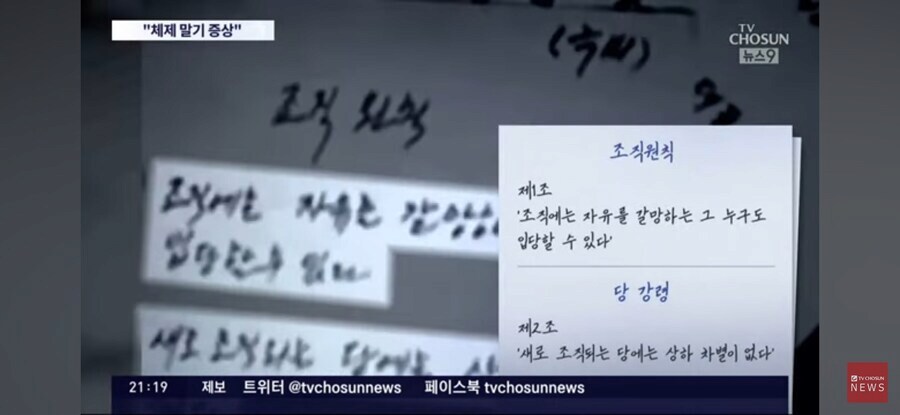 "체제 말기 증상"
TV
CHOSUN
뉴스9
조직 원칙
조직에는 자유를 갈망하
입당할수 있다
새로 조직되는 당에는 상
조직원칙
제1조
'조직에는 자유를 갈망하는 그 누구도
입당할 수 있다'
당 강령
제2조
'새로 조직되는 당에는 상하 차별이 없다'
21:19 제보 트위터 @tvchosunnews 페이스북 tvchosunnews
TV CHOSUN
NEWS